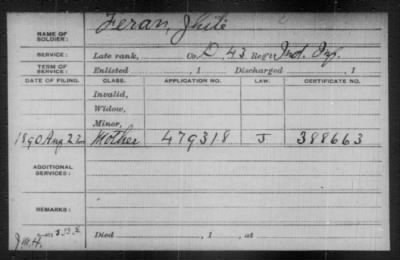 NAME OF SOLDIER: Feran, White
SERVICE: Late rank, Co. D, 43 Reg't Ind. Inf.
TERM OF SERVICE: Enlisted , 1 Discharged , 1
DATE OF FILING. CLASS. APPLICATION NO. LAW. CERTIFICATE NO.
Invalid,
Widow,
Minor,
1890 Aug 22 Mother 479318 J 388663
ADDITIONAL SERVICES:
REMARKS:
Died , 1 , at